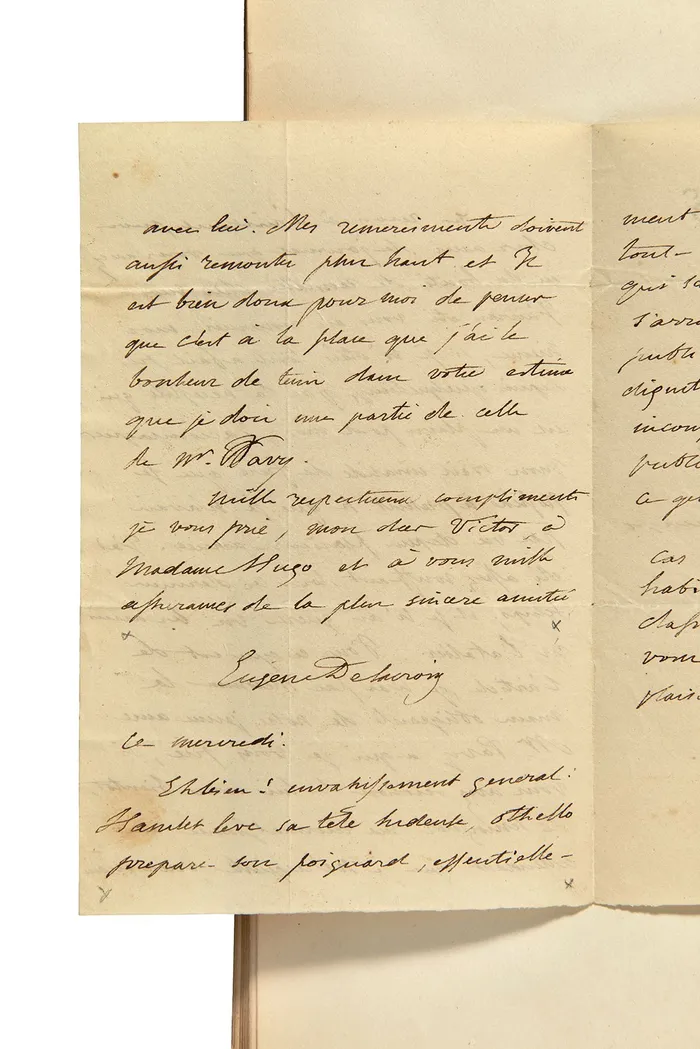 avec lui. Mes remerciments doivent
aussi remonter plus haut et Il
est bien doux pour moi de penser
que c'est à la place que j'ai le
bonheur de tenir dans votre estime
que je dois une partie de celle
de Mr. Pavy.
mille respectueux compliments
je vous prie, mon cher Victor, à
Madame Hugo et à vous mille
assurances de la plus sincère amitié
Eugene Delacroix
ce mercredi.
Eh bien! envahissement general:
Hamlet leve sa tête hideuse, Othello
prepare son poignard, essentielle-
ment
tout-
qui
s'arr
publi
dignit
incon
publi
a qu
cas
habi
vous
plais